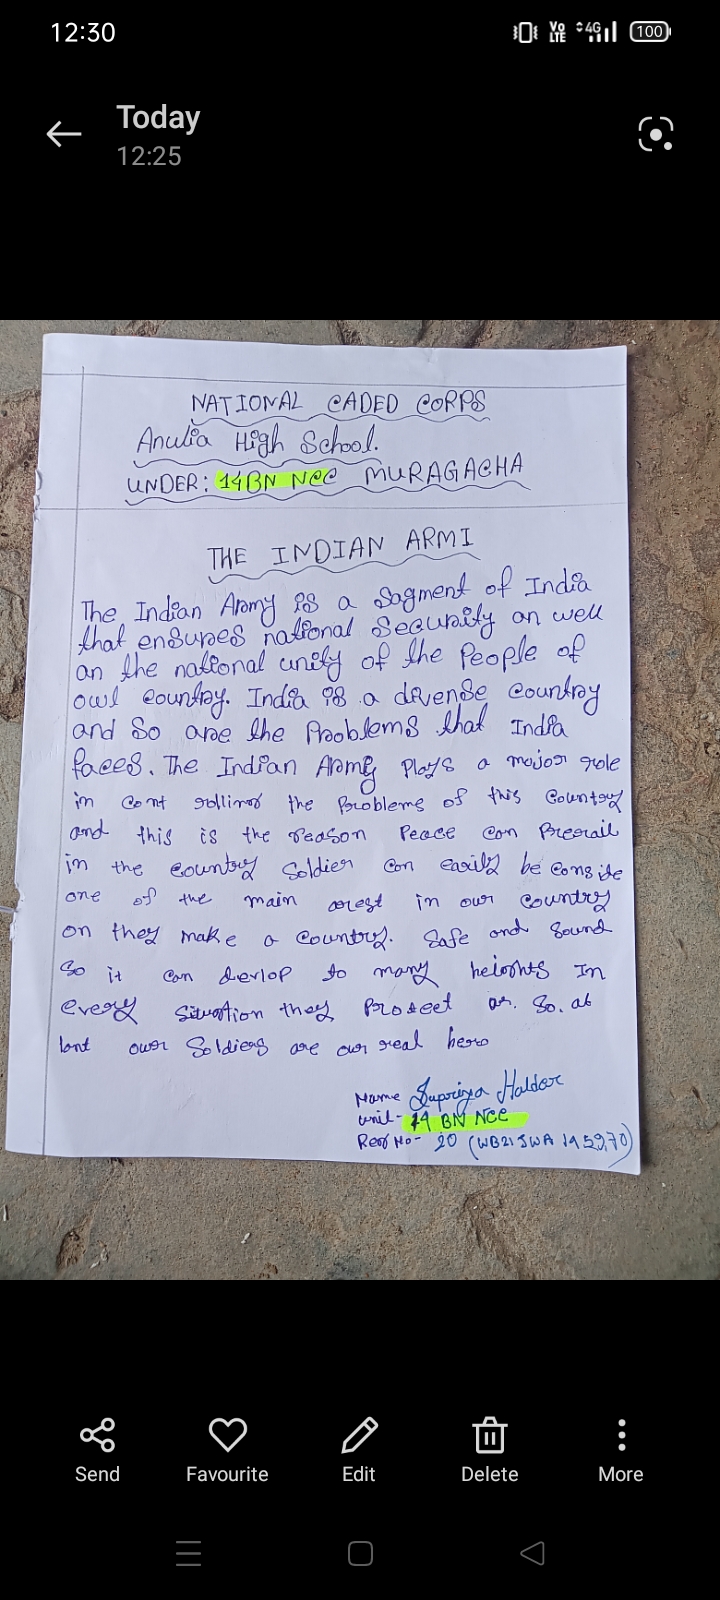 12:30
Vo LTE 4G 100
Today
12:25
NATIONAL CADED CORPS
Anulia High School.
UNDER: 14BN NCC MURAGACHA
THE INDIAN ARMI
The Indian Army is a Sagment of India
that ensures national Security an well
an the national unity of the People of
owl country. India is a divense country
and So are the Problems that India
faces. The Indian Army Plays a major role
in cont rolling the Problems of this Country
and this is the reason Peace can Prevail
in the country Soldier can easily be conside
one of the main in our country
on they make a country. Safe and Sound
So it can devlop to many heights In
every Situation they Protect So. at
lant owr Soldiers are our real hero
Name Supriya Halder
Unit- 14 BN NCC
No- 20 (WB21JWA
Send Favourite Edit Delete More